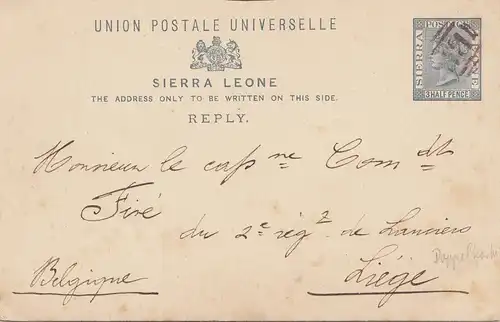 UNION POSTALE UNIVERSELLE
SIERRA LEONE
THE ADDRESS ONLY TO BE WRITTEN ON THIS SIDE.
REPLY.
SIERRA
POSTAGE
LEONE
3 HALF PENCE
Monsieur le cap ne Com dt
Firé
du 2e régt de Lanciers
Belgique
Liége